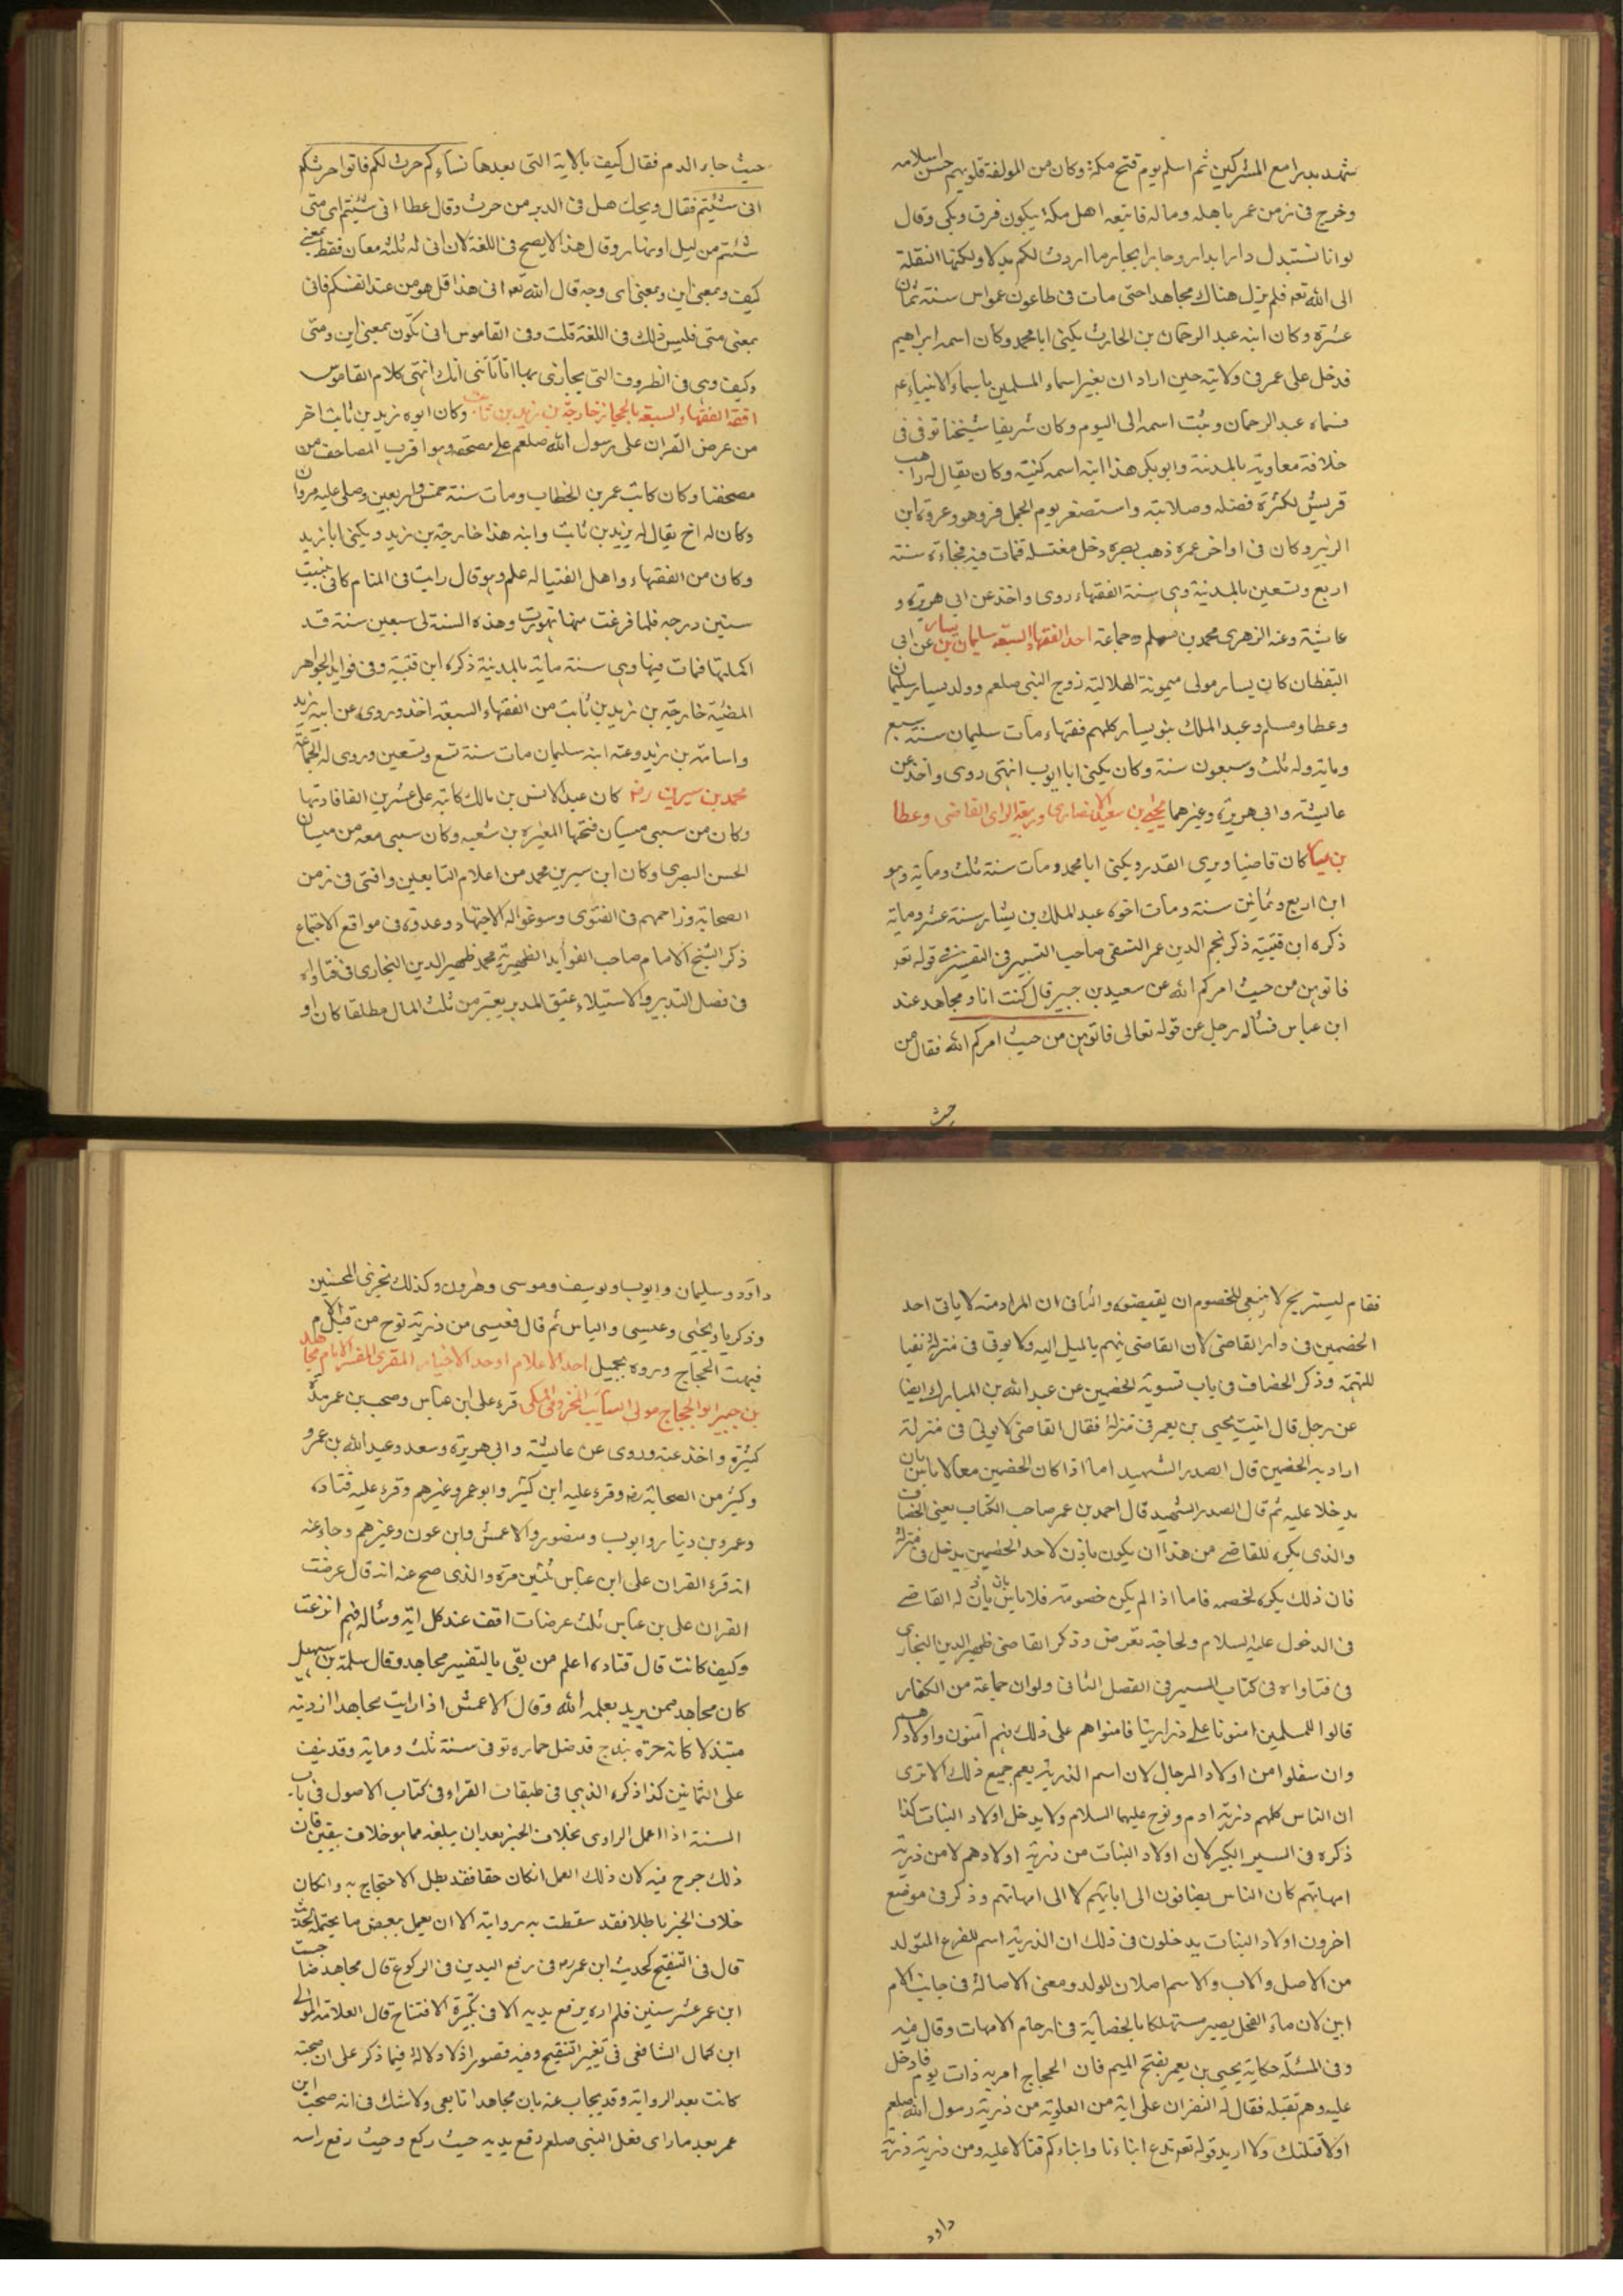 شهد بدرا مع المشركين ثم اسلم يوم فتح مكة وكان من المولفة قلوبهم حسن اسلامه
وخرج فى زمن عمر باهله وماله فاتبعه اهل مكة يبكون فرق وبكى وقال
لو انا نستبدل دارا بدار وجارا بجار ما اردت لكم بدلا ولكنها النقلة
الى الله تعه فلم يزل هناك مجاهدا حتى مات فى طاعون عمواس سنة ثمان
عشرة وكان ابنه عبد الرحمان بن الحارث يكنى ابا محمد وكان اسمه ابراهيم
فدخل على عمر فى ولايته حين اراد ان يغير اسماء المسلمين باسماء الانبياء عم
فسماه عبد الرحمان وثبت اسمه الى اليوم وكان شريفا شيخنا توفى فى
خلافة معاوية بالمدينة وابو بكر هذا ابنه اسمه كنيته وكان يقال له راهب
قريش لكثرة فضله وصلابته واستصغر يوم الجمل فرد هو وعروة ابن
الزبير وكان فى اواخر عمره ذهب بصره دخل مغتسله فمات فيه فجاءة سنة
اربع وتسعين بالمدينة وهى سنة الفقهاء روى واخذ عن ابى هريرة و
عايشة وعنه الزهرى محمد بن مسلم وجماعة احد الفقهاء السبعة سليمان بن يسار عن ابى
اليقظان كان يسار مولى ميمونة الهلالية زوج النبى صلعم وولد يسار سليمان
وعطا ومسلم وعبد الملك بنو يسار كلهم فقهاء مات سليمان سنة سبع
ومايه وله ثلث وسبعون سنة وكان يكنى ابا ايوب انتهى روى واخذ عن
عايشة وابى هريرة وغيرهما يحيى بن سعيد الانصارى وربيعة الراى القاضى وعطا
بن يسار كان قاضيا ويرى القدر ويكنى ابا محمد ومات سنة ثلث ومايه وهو
ابن اربع وثمانين سنة ومات اخوه عبد الملك بن يسار سنة عشر وماية
ذكره ابن قتيبة ذكر نجم الدين عمر النسفى صاحب التيسير فى التفسير فى قوله تعه
فاتوهن من حيث امركم الله عن سعيد بن جبير قال كنت انا ومجاهد عند
ابن عباس فسأله رجل عن قوله تعالى فاتوهن من حيث امركم الله فقال من
حيث
حيث جاء الدم فقال كيف بالاية التى بعدها نساءكم حرث لكم فاتوا حرثكم
انى شئتم فقال ويحك هل فى الدبر من حرث وقال عطا انى شئتم اى متى
شئتم من ليل او نهار وقال هذا لا يصح فى اللغة لان انى له ثلثه معان فقط بمعنى
كيف وبمعنى اين وبمعنى اى وجه قال الله تعه انى هذا قل هو من عند انفسكم فانى
بمعنى متى فليس ذلك فى اللغة قلت وفى القاموس انى تكون بمعنى اين ومتى
وكيف وهى فى الظروف التى يجازى بها انى تأتنى آتك انتهى كلام القاموس
افقه الفقهاء السبعة بالحجاز خارجة بن زيد بن ثابت وكان ابوه زيد بن ثابت اخر
من عرض القران على رسول الله صلعم على مصحفه وهو اقرب المصاحف من
مصحفنا وكان كاتب عمر بن الخطاب ومات سنة خمس واربعين وصلى عليه مروان
وكان له اخ يقال له يزيد بن ثابت وابنه هذا خارجة بن زيد ويكنى ابا زيد
وكان من الفقهاء واهل الفتيا له علم وهو قال رايت فى المنام كانى بنيت
ستين درجه فلما فرغت منها تهورت وهذه السنة لى سبعين سنة قد
اكملتها فمات فيها وهى سنة ماية بالمدينة ذكره ابن قتيبة وفى فوايد الجواهر
المضيئة خارجة بن زيد بن ثابت من الفقهاء السبعة اخذ وروى عن ابيه زيد
واسامة بن زيد وعنه ابنه سليمان مات سنة تسع وتسعين وروى له الجماعة
محمد بن سيرين رضه كان عبدا لانس بن مالك كاتبه على عشرين الفا فادتها
وكان من سبى ميسان فتحها المغيره بن شعبه وكان سبى معه من ميسان
الحسن البصرى وكان ابن سيرين محمد من اعلام التابعين وافتى فى زمن
الصحابة وزاحمهم فى الفتوى وسوغوا له الاجتهاد وعدوه فى مواقع الاجتماع
ذكر الشيخ الامام صاحب الفوايد الظهيرية محمد ظهير الدين البخارى فى فتاواه
فى فصل التدبير والاستيلاء عتق المدبر يعتبر من ثلث المال مطلقا كان او
فقام ليستريح لا ينبغى للخصوم ان يقيضوه والثانى ان المراد منه لا ياتى احد
الخصمين فى دار القاضى لان القاضى يتهم بالميل اليه ولا يوتى فى منزله نفيا
للتهمة وذكر الخصاف فى باب تسوية الخصمين عن عبد الله بن المبارك ايضا
عن رجل قال اتيت يحيى بن يعمر فى منزله فقال القاضى لا يوتى فى منزله
اراد به الخصمين قال الصدر الشهيد اما اذا كان الخصمين معا لا باس بان
يدخلا عليه ثم قال الصدر الشهيد قال احمد بن عمر صاحب الكتاب يعنى الخصاف
والذى يكره للقاضى من هذا ان يكون ياذن لاحد الخصمين يدخل فى منزله
فان ذلك يكره لخصمه فاما اذا لم يكن خصومة فلا باس بان ياذن له القاضى
فى الدخول عليه السلام ولحاجة تعرض وذكر القاضى ظهير الدين البخارى
فى فتاواه فى كتاب السير فى الفصل الثانى ولو ان جماعة من الكفار
قالوا للمسلمين امنونا على ذرارينا فامنوهم على ذلك فهم آمنون واولادهم
وان سفلوا من اولاد الرجال لان اسم الذرية يعم جميع ذلك الا ترى
ان الناس كلهم ذرية ادم ونوح عليهما السلام ولا يدخل اولاد البنات كذا
ذكره فى السير الكبير لان اولاد البنات من ذرية اولادهم لا من ذرية
امهاتهم كان الناس يضافون الى ابايهم لا الى امهاتهم وذكر فى موضع
اخرون اولاد البنات يدخلون فى ذلك ان الذرية اسم للفرع المتولد
من الاصل والاب والاسم اصلان للولد ومعنى الاصالة فى جانب الام
ابين لان ماء الفحل يصير مستهلكا بالحضانة فى ارحام الامهات وقال فيه
وفى المسئلة حكاية يحيى بن يعمر بفتح الميم فان الحجاج امر به ذات يوم فادخل
عليه وهم بقتله فقال له النضران على اية من العلوية من ذرية رسول الله صلعم
اولا قتلتك ولا اريد قوله تعه ندع ابناءنا وابناءكم فتلا عليه ومن ذريته ذرية
داود
داود وسليمان وايوب ويوسف وموسى وهرون وكذلك نجزى المحسنين
وذكريا ويحيى وعيسى والياس ثم قال فعيسى من ذرية نوح من قبل الام
فبهت الحجاج ورده بجميل احد الاعلام اوحد الاخيار المقرى المفسر الامام مجاهد
بن جبير ابو الحجاج مولى السايب المخزومى المكى قرء على ابن عباس وصحب بن عمر مدة
كثيرة واخذ عنه وروى عن عايشة وابى هريرة وسعد وعبد الله بن عمرو
وكثير من الصحابة رضه وقرء عليه ابن كثير وابو عمرو وغيرهم وقرء عليه قتاده
وعمرو بن دينار وايوب ومنصور والاعمش وابن عون وغيرهم وجاء عنه
انه قرء القران على ابن عباس ثلثين مرة والذى صح عنه انه قال عرضت
القران على بن عباس ثلث عرضات اقف عند كل اية وسأله فيم انزعت
وكيف كانت قال قتاده اعلم من بقى بالتفسير مجاهد وقال سلمة بن سهيل
كان مجاهد ممن يريد بعلمه الله وقال الاعمش اذا رايت مجاهدا ازدنيه
مبتذلا كانه خربندج قد ضل حماره توفى سنة ثلث وماية وقد نيف
على الثمانين كذا ذكره الذهبى فى طبقات القراء فى كتاب الاصول فى باب
السنة اذا اعمل الراوى بخلاف الخبر بعد ان يبلغه مما هو خلاف بيقين فان
ذلك جرح فيه لان ذلك العمل ان كان حقا فقد بطل الاحتجاج به وان كان
خلاف الخبر باطلا فقد سقطت به روايته الا ان يعمل ببعض ما يحتمله الحديث
قال فى التنقيح كحديث ابن عمر رض فى رفع اليدين فى الركوع قال مجاهد صاحبت
ابن عمر عشر سنين فلم اره يرفع يديه الا فى تكبيرة الافتتاح قال العلامة المولى
ابن كمال الشافعى فى تغيير التنقيح وفيه قصور اذ لا دلالة فيما ذكر على ان صحبته
كانت بعد الرواية وقد يجاب عنه بان مجاهدا تابعى ولا شك فى انه صحب ابن
عمر بعد ما راى فعل النبى صلعم رفع يديه حيث ركع وحيث رفع راسه